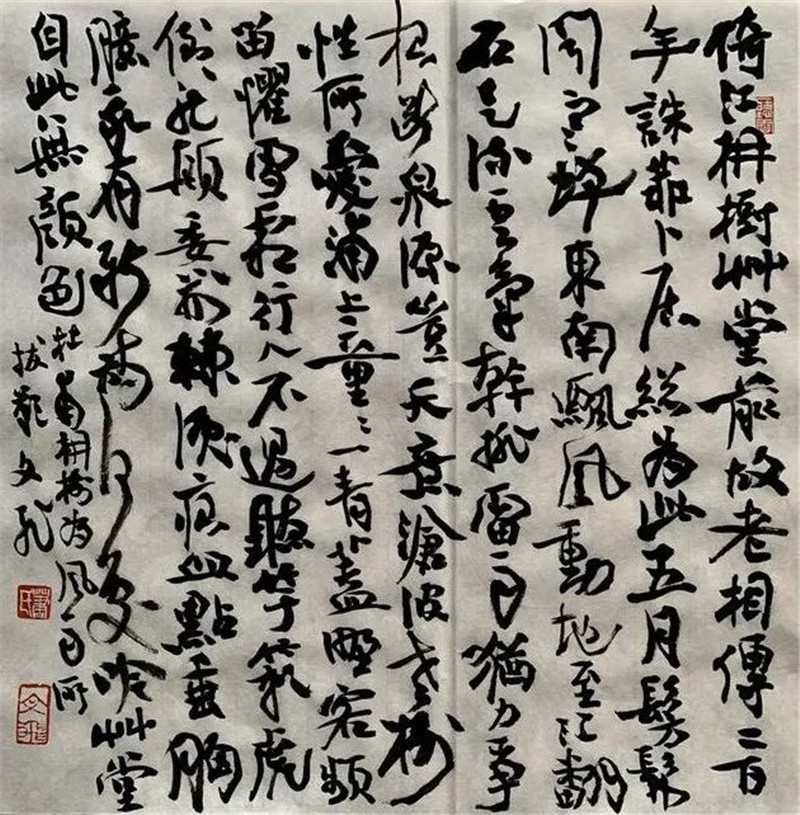 倚江枏樹艸堂前故老相傳二百
年誅茆卜居総為此五月髣髴
聞寒蟬東南飄風動地至江翻
石走流雲氣幹排雷雨猶力爭
根斷泉源豈天意滄波老樹
性所愛浦上童々一青蓋野客頻
留懼雪霜行人不過聽竽籟虎
倒龍顛委荊棘淚痕血點垂胸
臆我有新詩何處吟艸堂
自此無顏色 杜甫枏樹為風雨所
拔歎 文飛
蕭氏
文飛